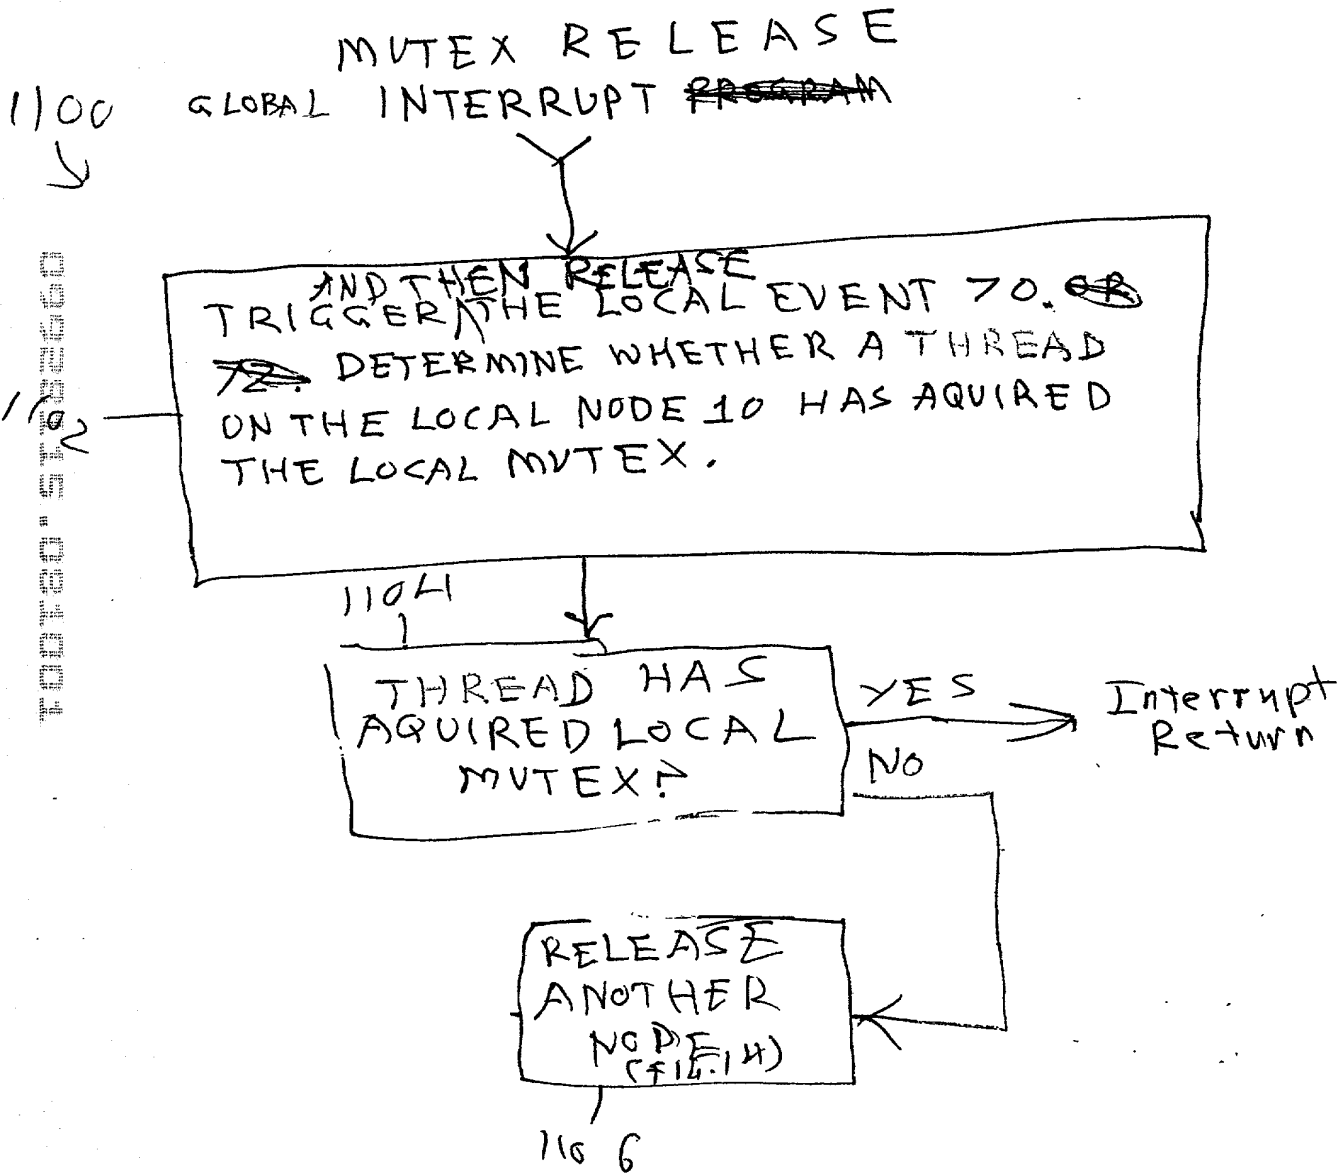 MUTEX RELEASE
1100 GLOBAL INTERRUPT PROGRAM
AND THEN RELEASE
TRIGGER THE LOCAL EVENT 70. OR
72. DETERMINE WHETHER A THREAD
1102 ON THE LOCAL NODE 10 HAS AQUIRED
THE LOCAL MUTEX.
1104
THREAD HAS
AQUIRED LOCAL
MUTEX?
YES
Interrupt
Return
NO
RELEASE
ANOTHER
NODE
(FIG.14)
1106
09928115.081001